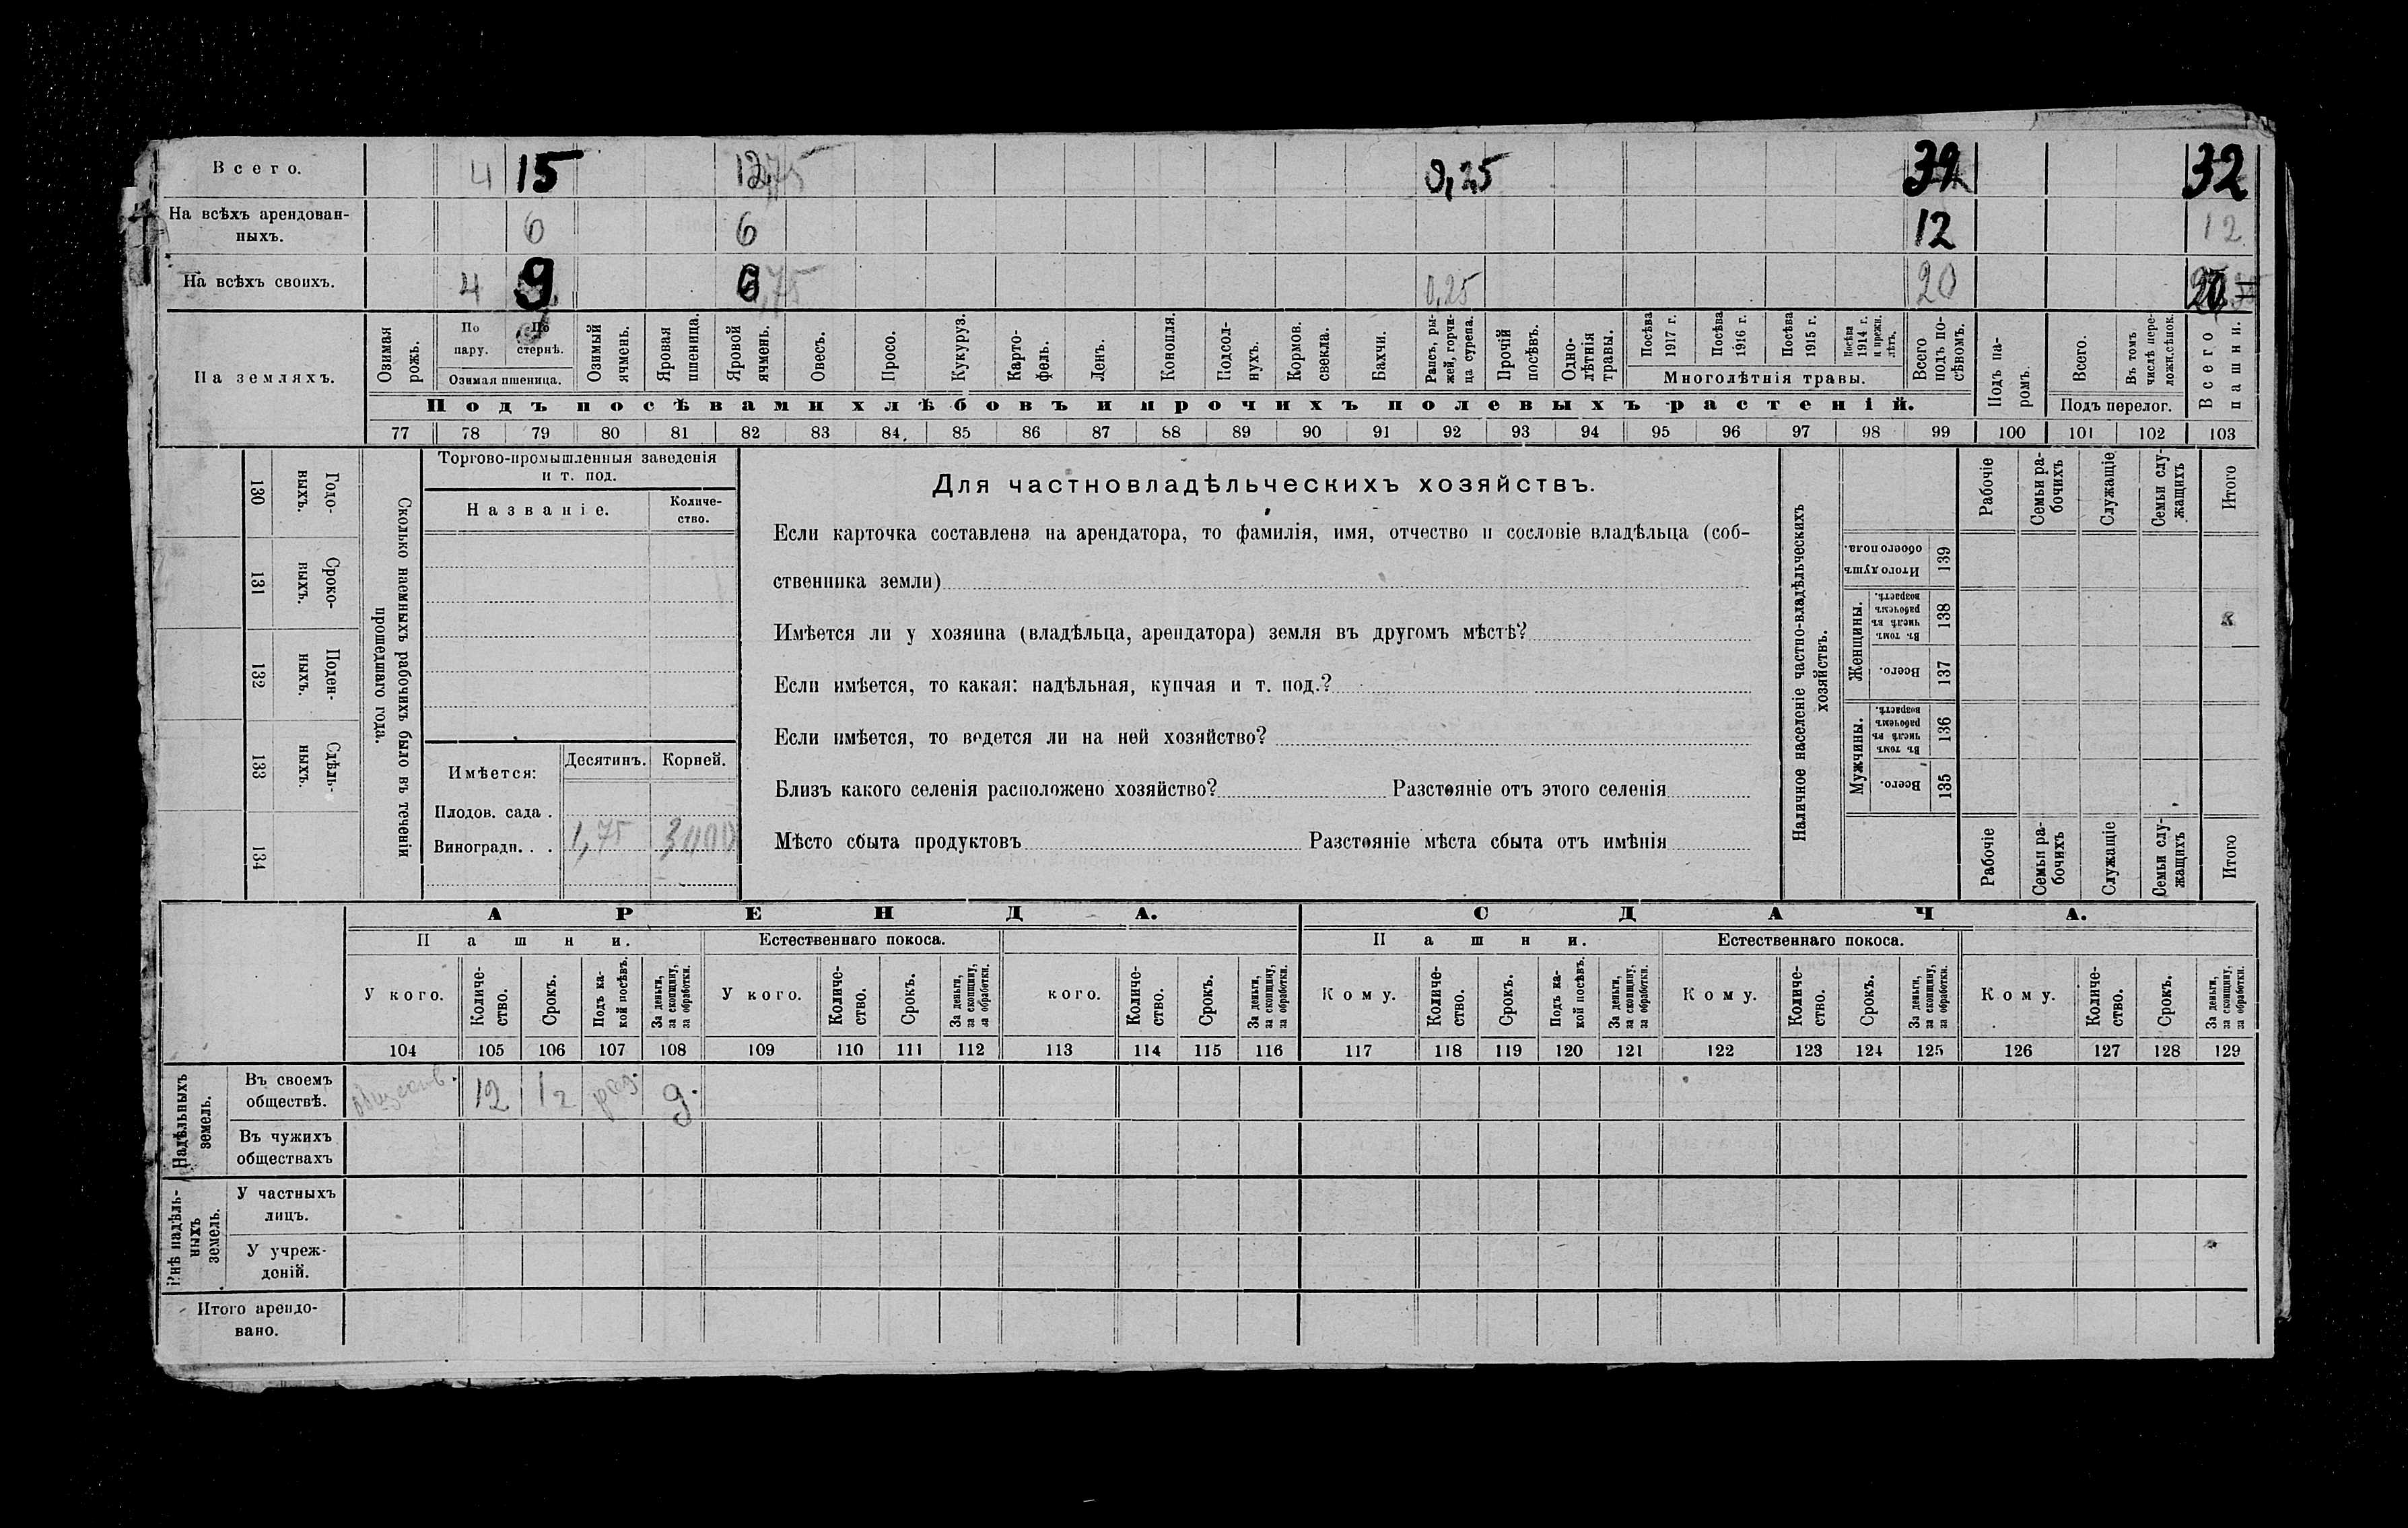 Всего. 4 15 12,75 0,25 32 32
На всѣхъ арендован-
ныхъ. 6 6 12 12
На всѣхъ своихъ. 4 9 6,75 0,25 20 20
На земляхъ.
Озимая рожь.
По пару.
По стернѣ.
Озимая пшеница.
Озимый ячмень.
Яровая пшеница.
Яровой ячмень.
Овесъ.
Просо.
Кукуруз.
Карто-
фель.
Ленъ.
Конопля.
Подсол-
нухъ.
Кормов. свекла.
Бахчи.
Рапсъ, ры-
жей, горчи-
ца сурепа.
Прочій посѣвъ.
Одно-
лѣтнія травы.
Посѣва 1917 г.
Посѣва 1916 г.
Посѣва 1915 г.
Посѣва 1914 г. и прежн. лѣтъ.
Многолѣтнія травы.
Всего подъ по-
сѣвомъ.
Подъ па-
ромъ.
Всего.
Въ томъ числѣ пере-
ложн.сѣнок.
Подъ перелог.
Всего пашни.
Подъ посѣвами хлѣбовъ и прочихъ полевыхъ растеній.
77 78 79 80 81 82 83 84. 85 86 87 88 89 90 91 92 93 94 95 96 97 98 99 100 101 102 103
130 Годо-
ныхъ.
131 Сроко-
ныхъ.
132 Поден-
ныхъ.
133 Сдѣль-
ныхъ.
134
Сколько наемныхъ рабочихъ было въ теченіи
прошедшаго года.
Торгово-промышленныя заведенія
и т. под.
Названіе. Количе-
ство.
Имѣется: Десятин. Корней.
Плодов. сада .
Виноградн. . . 1,75 3000
Для частновладѣльческихъ хозяйствъ.
Если карточка составлена на арендатора, то фамилія, имя, отчество и сословіе владѣльца (соб-
ственника земли)
Имѣется ли у хозяина (владѣльца, арендатора) земля въ другомъ мѣстѣ?
Если имѣется, то какая: надѣльная, купчая и т. под.?
Если имѣется, то ведется ли на ней хозяйство?
Близъ какого селенія расположено хозяйство? Разстояніе отъ этого селенія
Мѣсто сбыта продуктовъ Разстояніе мѣста сбыта отъ имѣнія
Наличное населеніе частно-владѣльческихъ
хозяйствъ.
Рабочіе
Семьи ра-
бочихъ
Служащіе
Семьи слу-
жащихъ
Итого
Итого душъ обоего пола. 139
Женщины.
Въ томъ числѣ въ рабочемъ возрастѣ. 138
Всего. 137
Мужчины.
Въ томъ числѣ въ рабочемъ возрастѣ. 136
Всего. 135
Рабочіе
Семьи ра-
бочихъ
Служащіе
Семьи слу-
жащихъ
Итого
АРЕНДА. СДАЧА.
Пашни. Естественнаго покоса. Пашни. Естественнаго покоса.
У кого.
Количе-
ство.
Срокъ.
Подъ ка-
кой посѣвъ.
За деньги, за скопщину, за обработки.
У кого.
Количе-
ство.
Срокъ.
За деньги, за скопщину, за обработки.
кого.
Количе-
ство.
Срокъ.
За деньги, за скопщину, за обработки.
Кому.
Количе-
ство.
Срокъ.
Подъ ка-
кой посѣвъ.
За деньги, за скопщину, за обработки.
Кому.
Количе-
ство.
Срокъ.
За деньги, за скопщину, за обработки.
Кому.
Количе-
ство.
Срокъ.
За деньги, за скопщину, за обработки.
104 105 106 107 108 109 110 111 112 113 114 115 116 117 118 119 120 121 122 123 124 125 126 127 128 129
Надѣльныхъ
земель.
Въ своемъ
обществѣ. 12 д.
Въ чужихъ
обществахъ
Внѣ надѣль-
ныхъ
земель.
У частныхъ
лицъ.
У учреж-
деній.
Итого арендо-
вано.